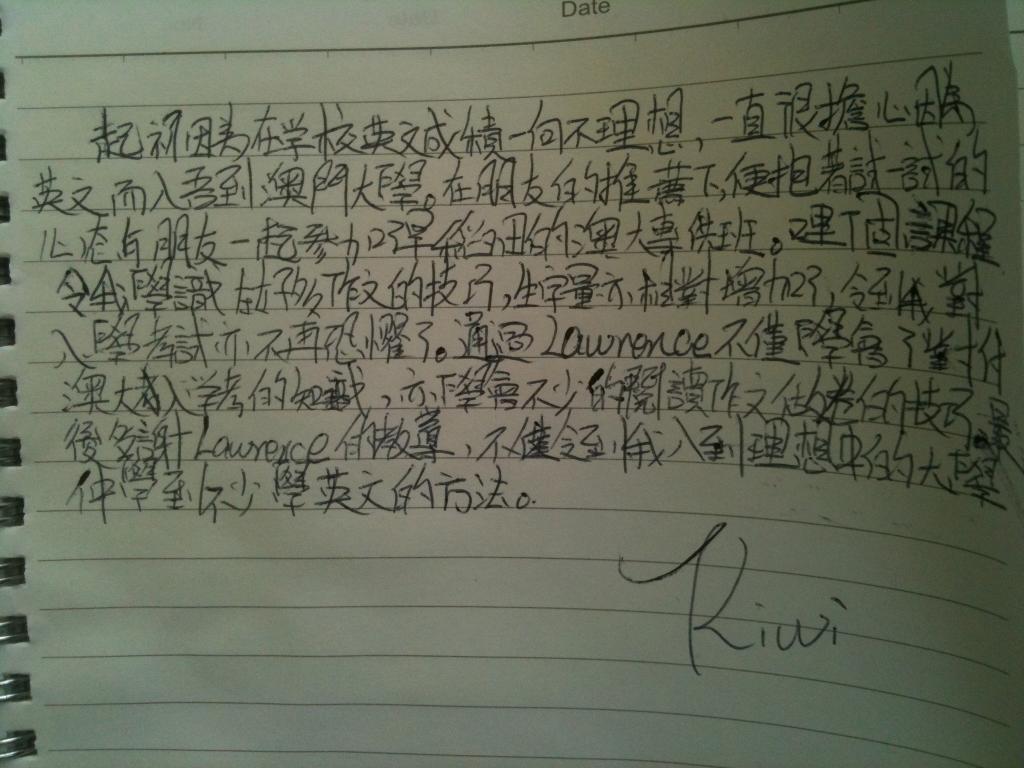 Date
起初因為在学校英文成績一向不理想，一直很擔心因為
英文而入唔到澳門大學。在朋友的推薦下，便抱着試一試的
心态與朋友一起參加了呀的澳大專供班。這個課程
令我學識好多作文的技巧，生字量亦相對增加了，令到我對
入學考試亦不再恐懼了。通過Lawrence不僅學會了對付
澳大入学考的知識，亦學會不少的閱讀作文做卷的技巧
後多謝Lawrence的教導，不僅令到我入到理想中的大學
仲學到不少學英文的方法。
Kiwi